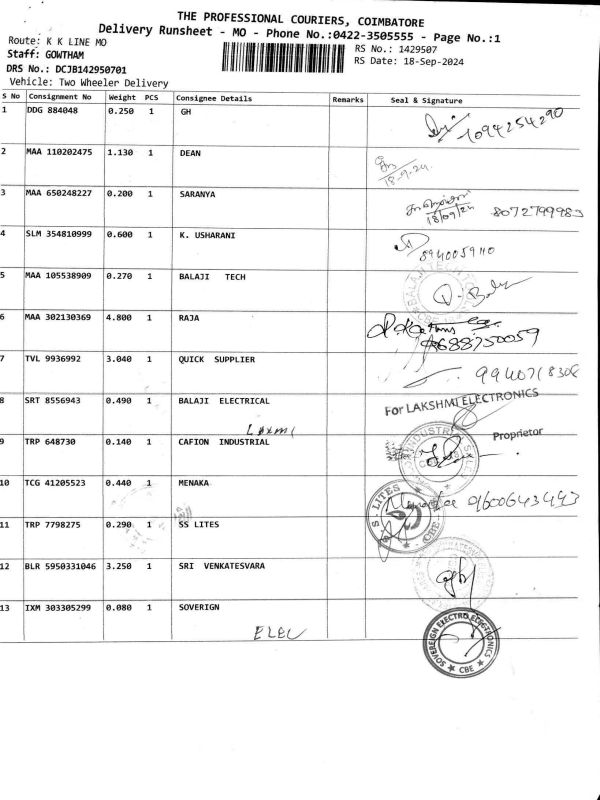 THE PROFESSIONAL COURIERS, COIMBATORE
Delivery Runsheet - MO - Phone No.:0422-3505555 - Page No.:1
Route: K K LINE MO
RS No.: 1429507
Staff: GOWTHAM
RS Date: 18-Sep-2024
DRS No.: DCJB142950701
Vehicle: Two Wheeler Delivery
S No Consignment No Weight PCS Consignee Details Remarks Seal & Signature
1 DDG 884048 0.250 1 GH
1094254290
2 MAA 110202475 1.130 1 DEAN
18-9-24
3 MAA 650248227 0.200 1 SARANYA
18/09/24 8072799983
4 SLM 354810999 0.600 1 K. USHARANI
8940059110
5 MAA 105538909 0.270 1 BALAJI TECH
BALAJI TECH
6 MAA 302130369 4.800 1 RAJA
9688750059
7 TVL 9936992 3.040 1 QUICK SUPPLIER
9940718308
8 SRT 8556943 0.490 1 BALAJI ELECTRICAL
Laxmi
For LAKSHMI ELECTRONICS
Proprietor
9 TRP 648730 0.140 1 CAFION INDUSTRIAL
10 TCG 41205523 0.440 1 MENAKA
9600643493
11 TRP 7798275 0.290 1 SS LITES
S.S. LITES CBE
12 BLR 5950331046 3.250 1 SRI VENKATESVARA
13 IXM 303305299 0.080 1 SOVERIGN
ELEC
SOVEREIGN ELECTRO ELECTRONICS
CBE